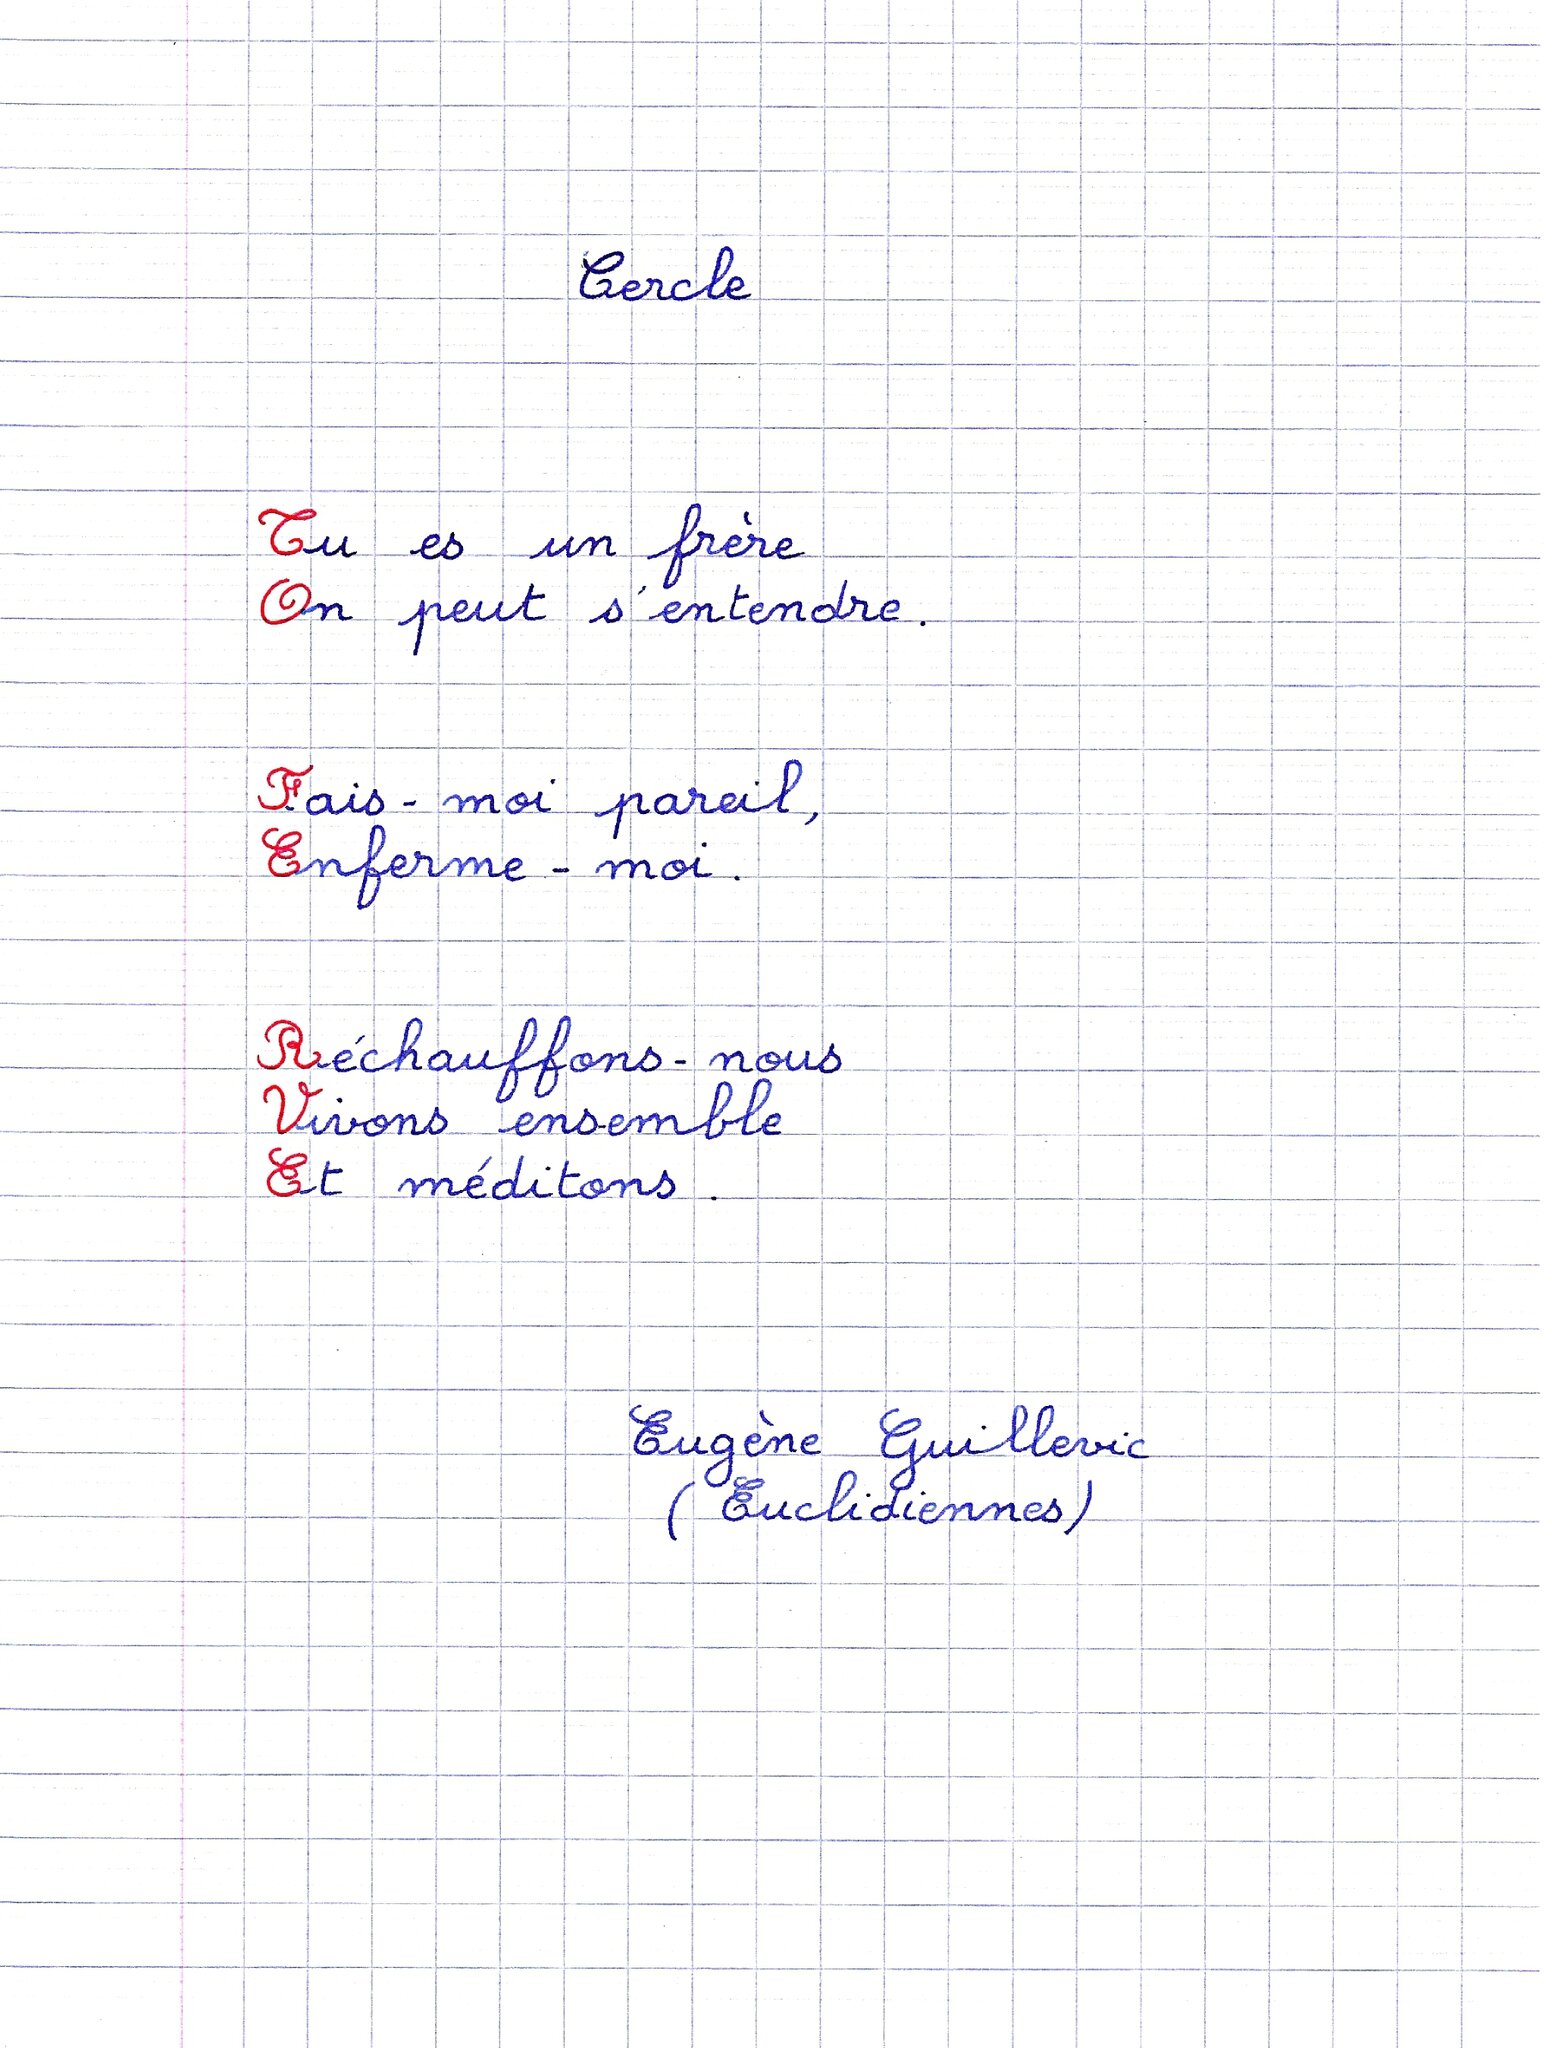 Cercle
Tu es un frère
On peut s'entendre.
Fais-moi pareil,
Enferme-moi.
Réchauffons-nous
Vivons ensemble
Et méditons.
Eugène Guillevic
(Euclidiennes)